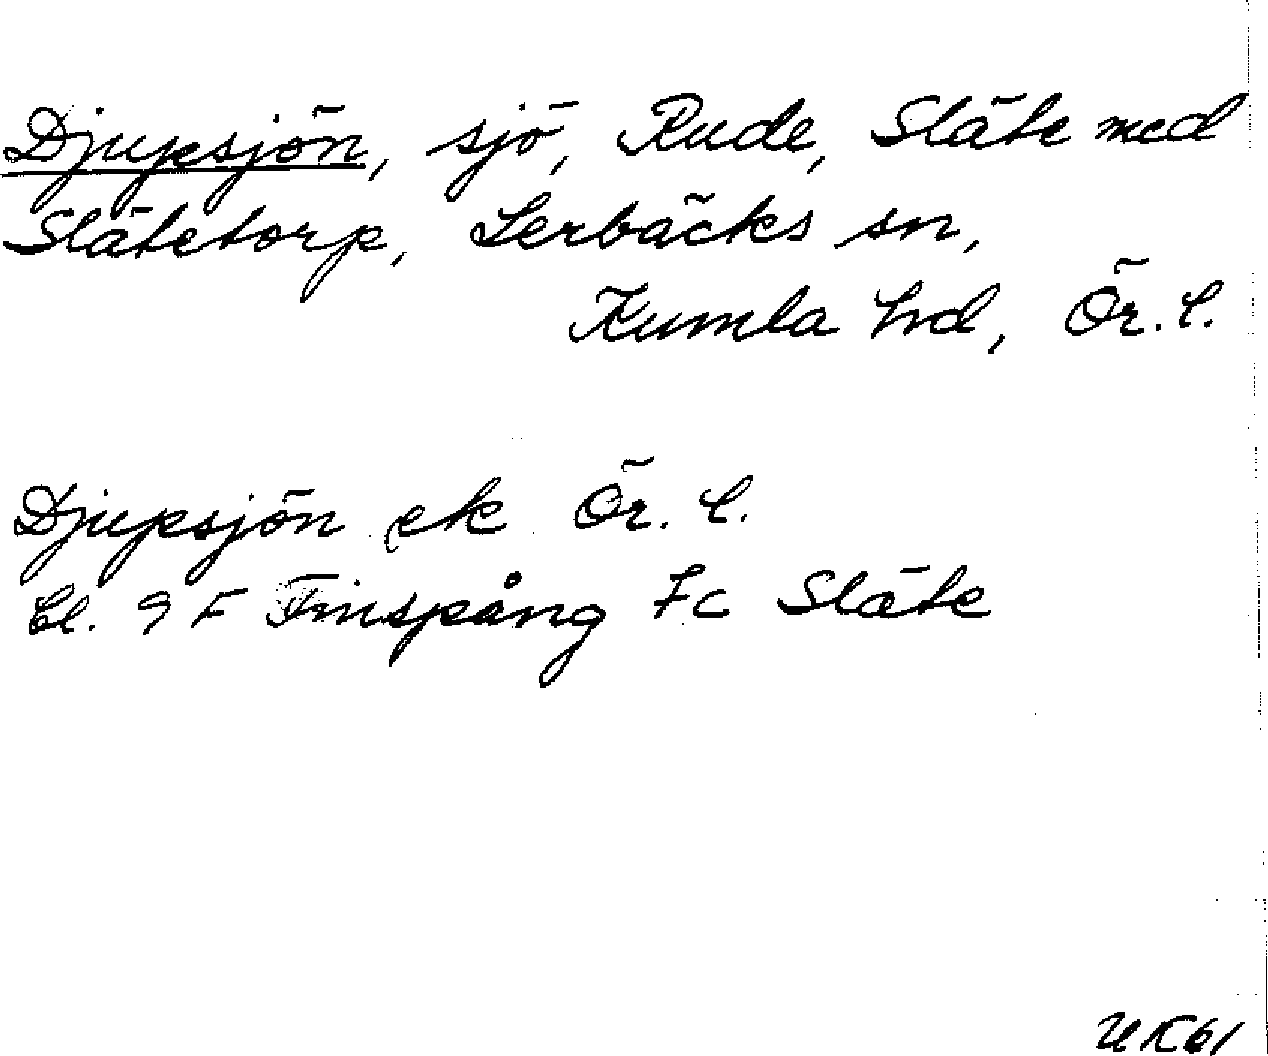 Djupsjön, sjö, Rude, Släte med
Slätetorp, Lerbäcks sn,
Kumla hd, Ör. l.
Djupsjön ek Ör. l.
bl. 9 F Finspång Fc Släte
UK61